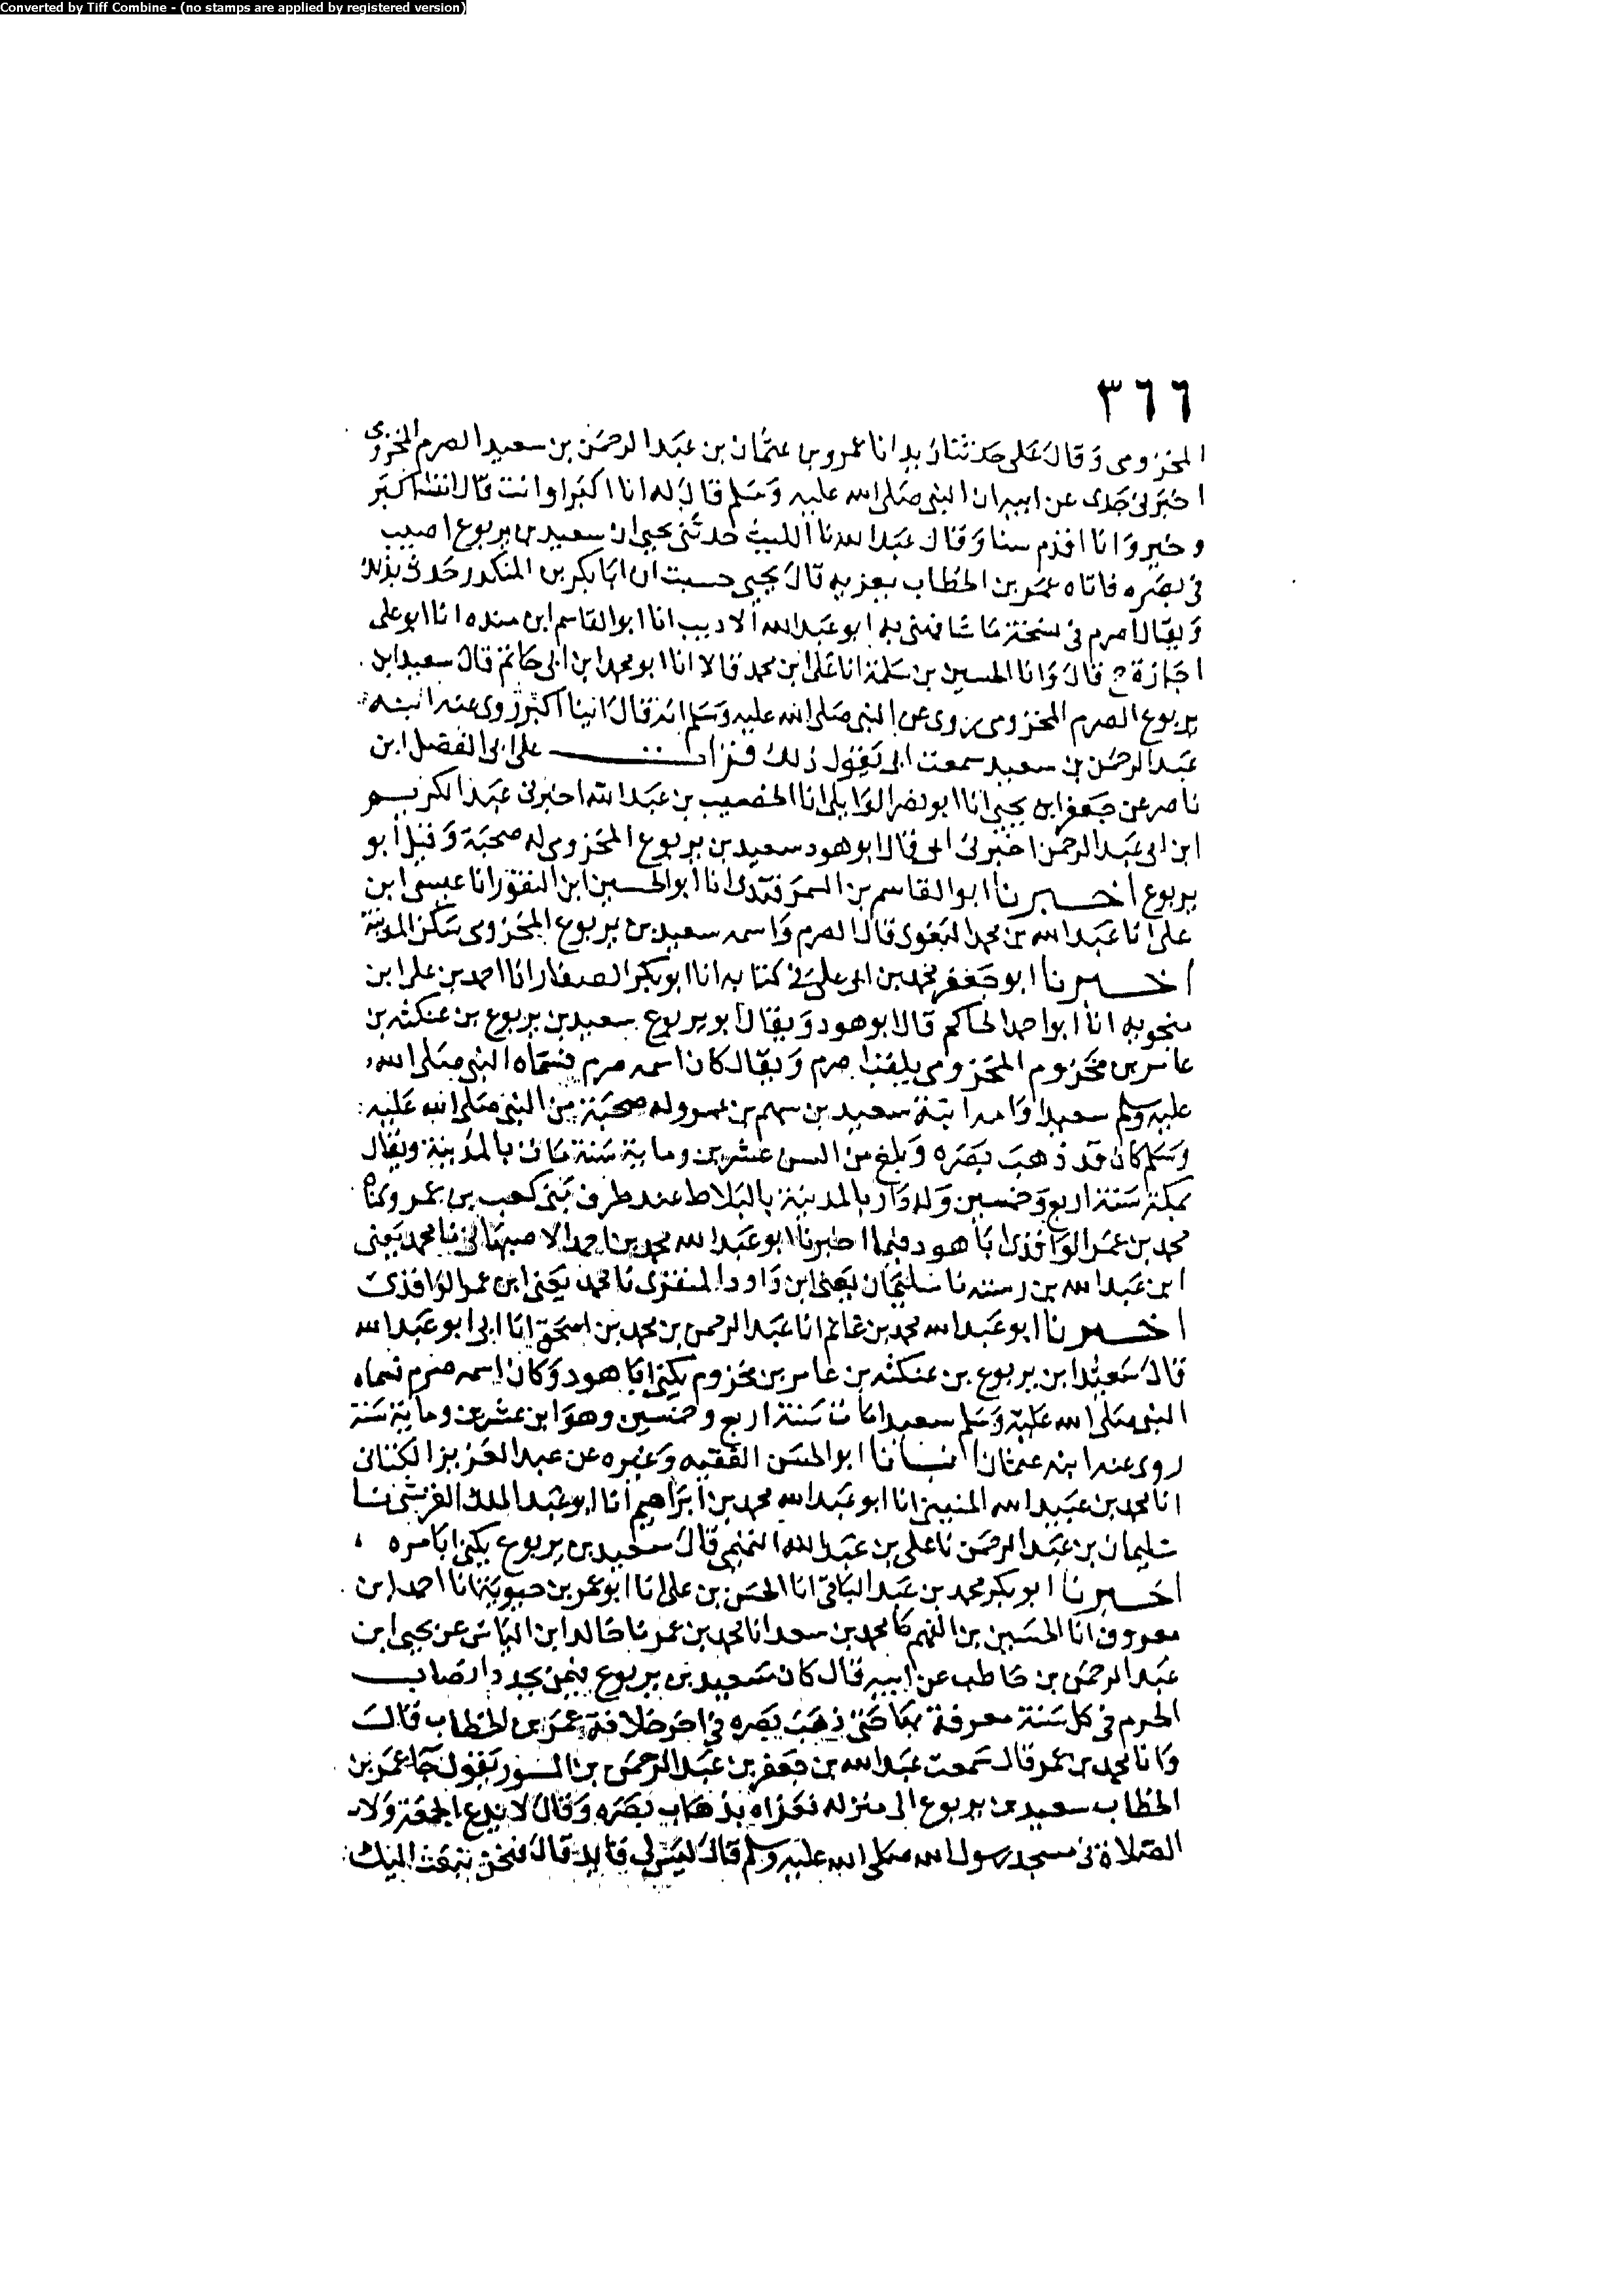 Converted by Tiff Combine - (no stamps are applied by registered version)
٣٦٦
المخزومى وقال على حدثنا زيد انا عمرو بن عثمان بن عبد الرحمن بن سعيد الصرم المخزومى
اخبرنى جدى عن ابيه ان النبى صلى الله عليه وسلم قال له انا اكبر او انت قال انت اكبر
وخير وانا اقدم سنا وقال عبد الله نا الليث حدثنى يحيى ان سعيد بن يربوع اصيب
فى بصره فاتاه عمر بن الخطاب يعزيه قال يحيى حسبت ان ابا بكر بن المنكدر حدثنى بذلك
ويقال اصرم فى نسخة ما شافهنى به ابو عبد الله الاديب انا ابو القاسم ابن منده انا ابو على
اجازة ح قال وانا الحسين بن سلمة انا على ابن محمد قالا انا ابو محمد ابن ابى حاتم قال سعيد ابن
يربوع الصرم المخزومى يروى عن النبى صلى الله عليه وسلم انه قال اينا اكبر روى عنه ابنه
عبد الرحمن بن سعيد سمعت ابى يقول ذلك قرات على ابى الفضل ابن
ناصر عن جعفر ابن يحيى انا ابو نصر الوايلى انا الخصيب بن عبد الله اخبرنى عبد الكريم
ابن ابى عبد الرحمن اخبرنى ابى قال ابو هود سعيد بن يربوع المخزومى له صحبة وقيل ابو
يربوع اخبرنا ابو القاسم بن السمرقندى انا ابو الحسين ابن النقور انا عيسى ابن
على انا عبد الله بن محمد البغوى قال الصرم واسمه سعيد بن يربوع المخزومى سكن المدينة
اخبرنا ابو جعفر محمد بن ابى على فى كتابه انا ابو بكر الصفار انا احمد بن على ابن
منجويه انا ابو احمد الحاكم قال ابو هود ويقال ابو يربوع سعيد بن يربوع بن عنكثه بن
عامر بن مخزوم المخزومى يلقب صرم ويقال كان اسمه صرم فسماه النبى صلى الله
عليه وسلم سعيدا وامه ابنة سعيد بن سهم بن عمرو له صحبة من النبى صلى الله عليه
وسلم كان قد ذهب بصره وبلغ من السن عشرين وماية سنة مات بالمدينة ويقال
بمكة سنة اربع وخمسين وله دار بالمدينة بالبلاط عند طرف بنى كعب بن عمرو كناه
محمد بن عمر الواقدى ابا هود فيما اخبرنا ابو عبد الله محمد بن احمد الاصبهانى نا محمد يعنى
ابن عبد الله بن رسته نا سليمان يعنى ابن داود المنقرى نا محمد يعنى ابن عمر الواقدى
اخبرنا ابو عبد الله محمد بن غانم انا عبد الرحمن بن محمد بن اسحق انا ابى ابو عبد الله
قال سعيد ابن يربوع بن عنكثه بن عامر بن مخزوم يكنى ابا هود وكان اسمه صرم فسماه
النبى صلى الله عليه وسلم سعيدا مات سنة اربع وخمسين وهو ابن عشرين وماية سنة
روى عنه ابنه عثمان انبانا ابو الحسن الفقيه وغيره عن عبد العزيز الكتانى
انا محمد بن عبيد الله المنينى انا ابو عبد الله محمد بن ابراهيم انا ابو عبد الملك القرشى نا
سليمان بن عبد الرحمن نا على بن عبد الله التميمى قال سعيد بن يربوع يكنى ابا مره
اخبرنا ابو بكر محمد بن عبد الباقى انا الحسن بن على انا ابو عمر بن حيوية انا احمد ابن
معروف انا الحسين بن الفهم نا محمد بن سعد انا محمد بن عمر نا خالد ابن الياس عن يحيى ابن
عبد الرحمن بن حاطب عن ابيه قال كان سعيد بن يربوع فيمن يجدد انصاب
الحرم فى كل سنة معرفة بها حتى ذهب بصره فى اخر خلافة عمر بن الخطاب قال
وانا محمد بن عمر قال سمعت عبد الله بن جعفر بن عبد الرحمن بن المسور يقول جا عمر بن
الخطاب سعيد بن يربوع الى منزله فعزاه بذهاب بصره وقال لا تدع الجمعة ولا
الصلاة فى مسجد رسول الله صلى الله عليه وسلم قال ليس لى قايد قال فنحن نبعث اليك